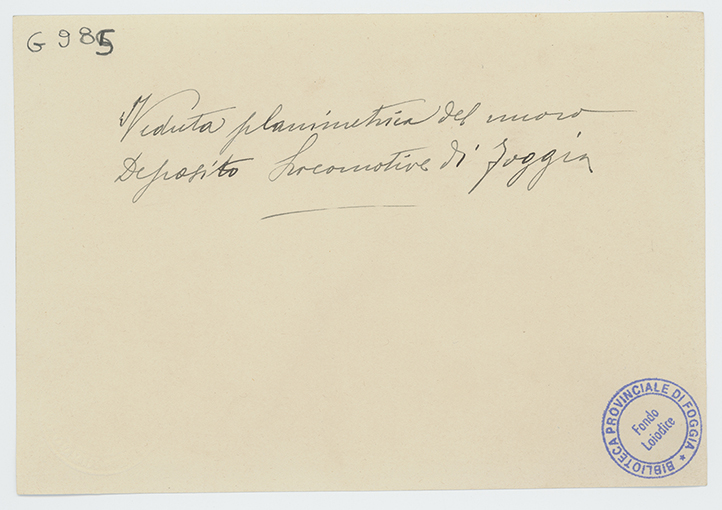 G 985
Veduta planimetrica del nuovo
Deposito Locomotive di Foggia
BIBLIOTECA PROVINCIALE DI FOGGIA *
Fondo
Loiodice